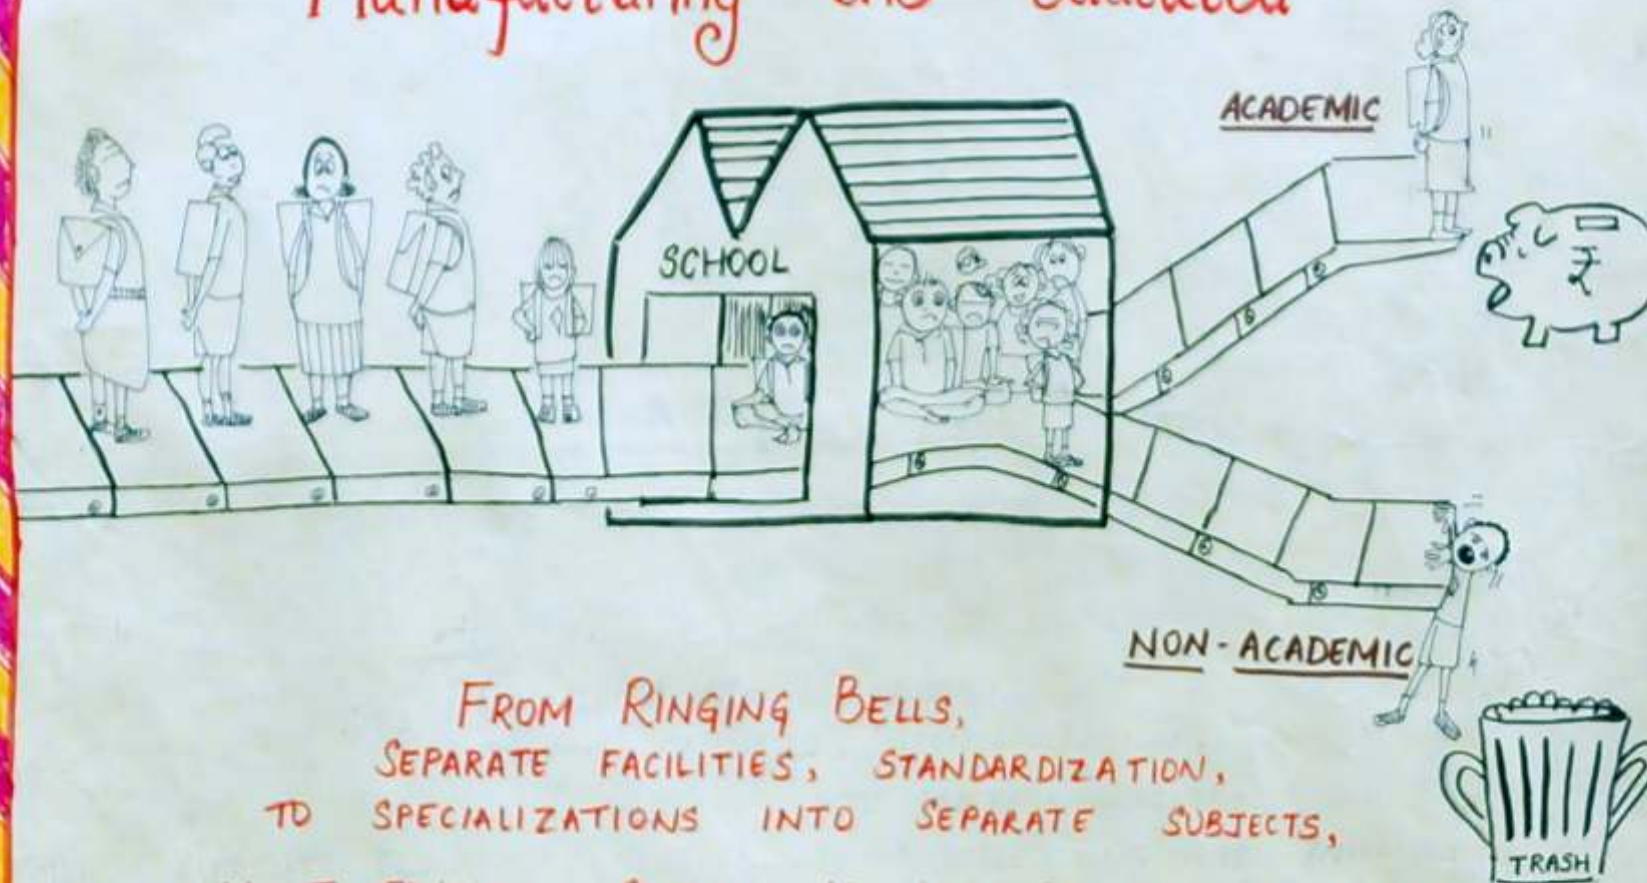 Manufacturing the educated
ACADEMIC
SCHOOL
₹
NON-ACADEMIC
FROM RINGING BELLS,
SEPARATE FACILITIES, STANDARDIZATION,
TO SPECIALIZATIONS INTO SEPARATE SUBJECTS,
TRASH